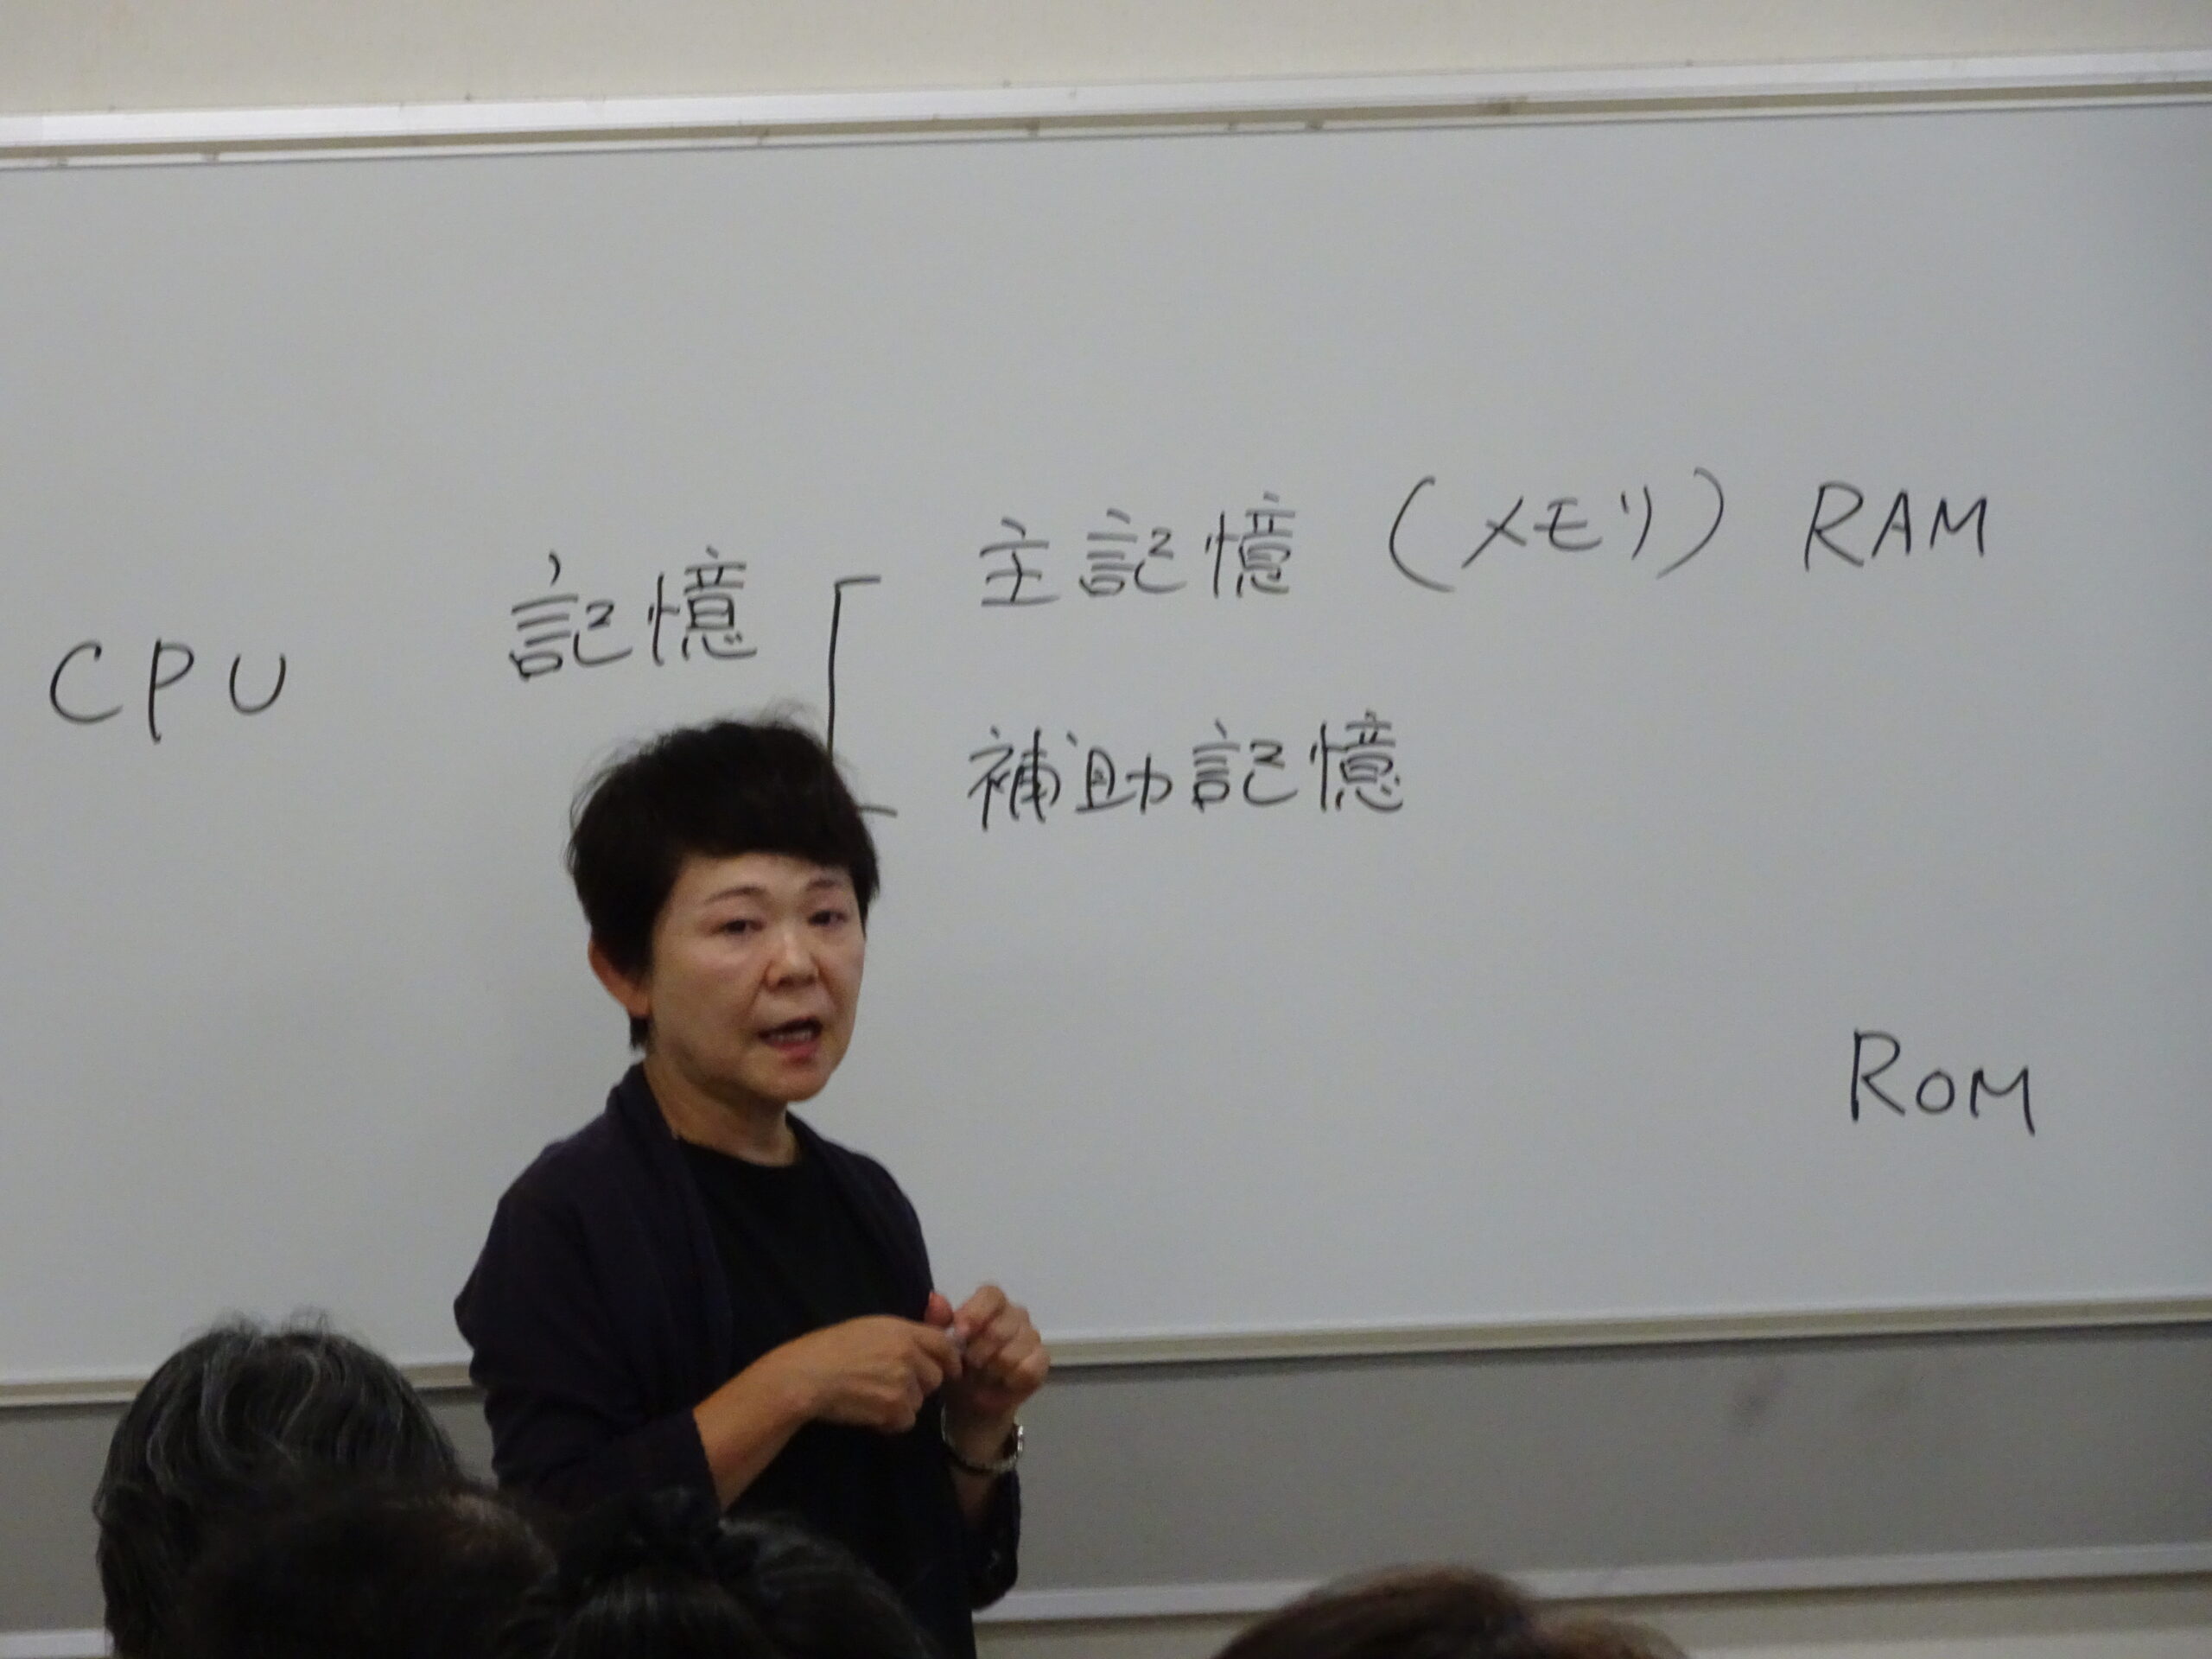 CPU
記憶
主記憶 (メモリ) RAM
補助記憶
ROM